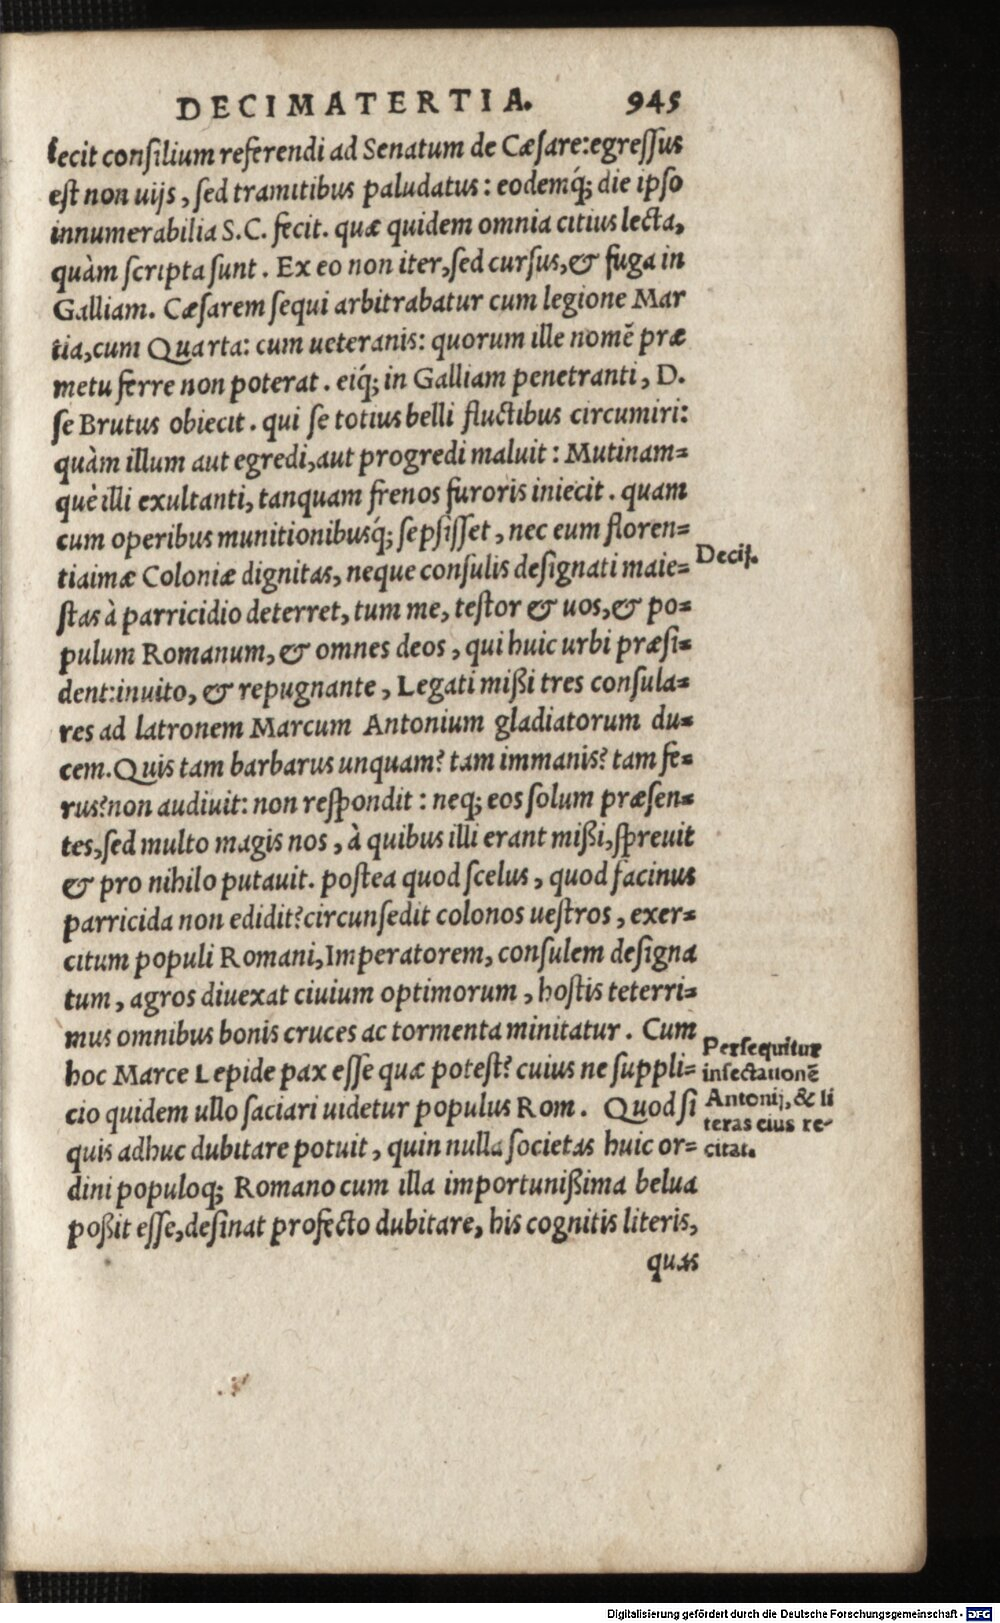 DECIMATERTIA. 945
iecit consilium referendi ad Senatum de Cæsare:egressus
est non uijs, sed tramitibus paludatus: eodemq́; die ipso
innumerabilia S.C. fecit. quæ quidem omnia citius lecta,
quàm scripta sunt. Ex eo non iter,sed cursus,& fuga in
Galliam. Cæsarem sequi arbitrabatur cum legione Mar
tia,cum Quarta: cum ueteranis: quorum ille nomẽ præ
metu ferre non poterat. eiq́; in Galliam penetranti, D.
se Brutus obiecit. qui se totius belli fluctibus circumiri:
quàm illum aut egredi,aut progredi maluit: Mutinam=
què illi exultanti, tanquam frenos furoris iniecit. quam
cum operibus munitionibusq́; sepsisset, nec eum floren=
tiaimæ Coloniæ dignitas, neque consulis designati maie=
Decis.
stas à parricidio deterret, tum me, testor & uos,& po=
pulum Romanum, & omnes deos, qui huic urbi præsi=
dent:inuito, & repugnante, Legati mißi tres consula=
res ad latronem Marcum Antonium gladiatorum du=
cem.Quis tam barbarus unquam? tam immanis? tam fe=
rus?non audiuit: non respondit: neq; eos solum præsen=
tes,sed multo magis nos, à quibus illi erant mißi,spreuit
& pro nihilo putauit. postea quod scelus, quod facinus
parricida non edidit?circunsedit colonos uestros, exer=
citum populi Romani,Imperatorem, consulem designa
tum, agros diuexat ciuium optimorum, hostis teterri=
mus omnibus bonis cruces ac tormenta minitatur. Cum
hoc Marce Lepide pax esse quæ potest? cuius ne suppli=
cio quidem ullo saciari uidetur populus Rom. Quod si
quis adhuc dubitare potuit, quin nulla societas huic or=
dini populoq; Romano cum illa importunißima belua
poßit esse,desinat profecto dubitare, his cognitis literis,
Persequitur
insectationẽ
Antonij, & li
teras eius re-
citat.
quas
Digitalisierung gefördert durch die Deutsche Forschungsgemeinschaft - DFG